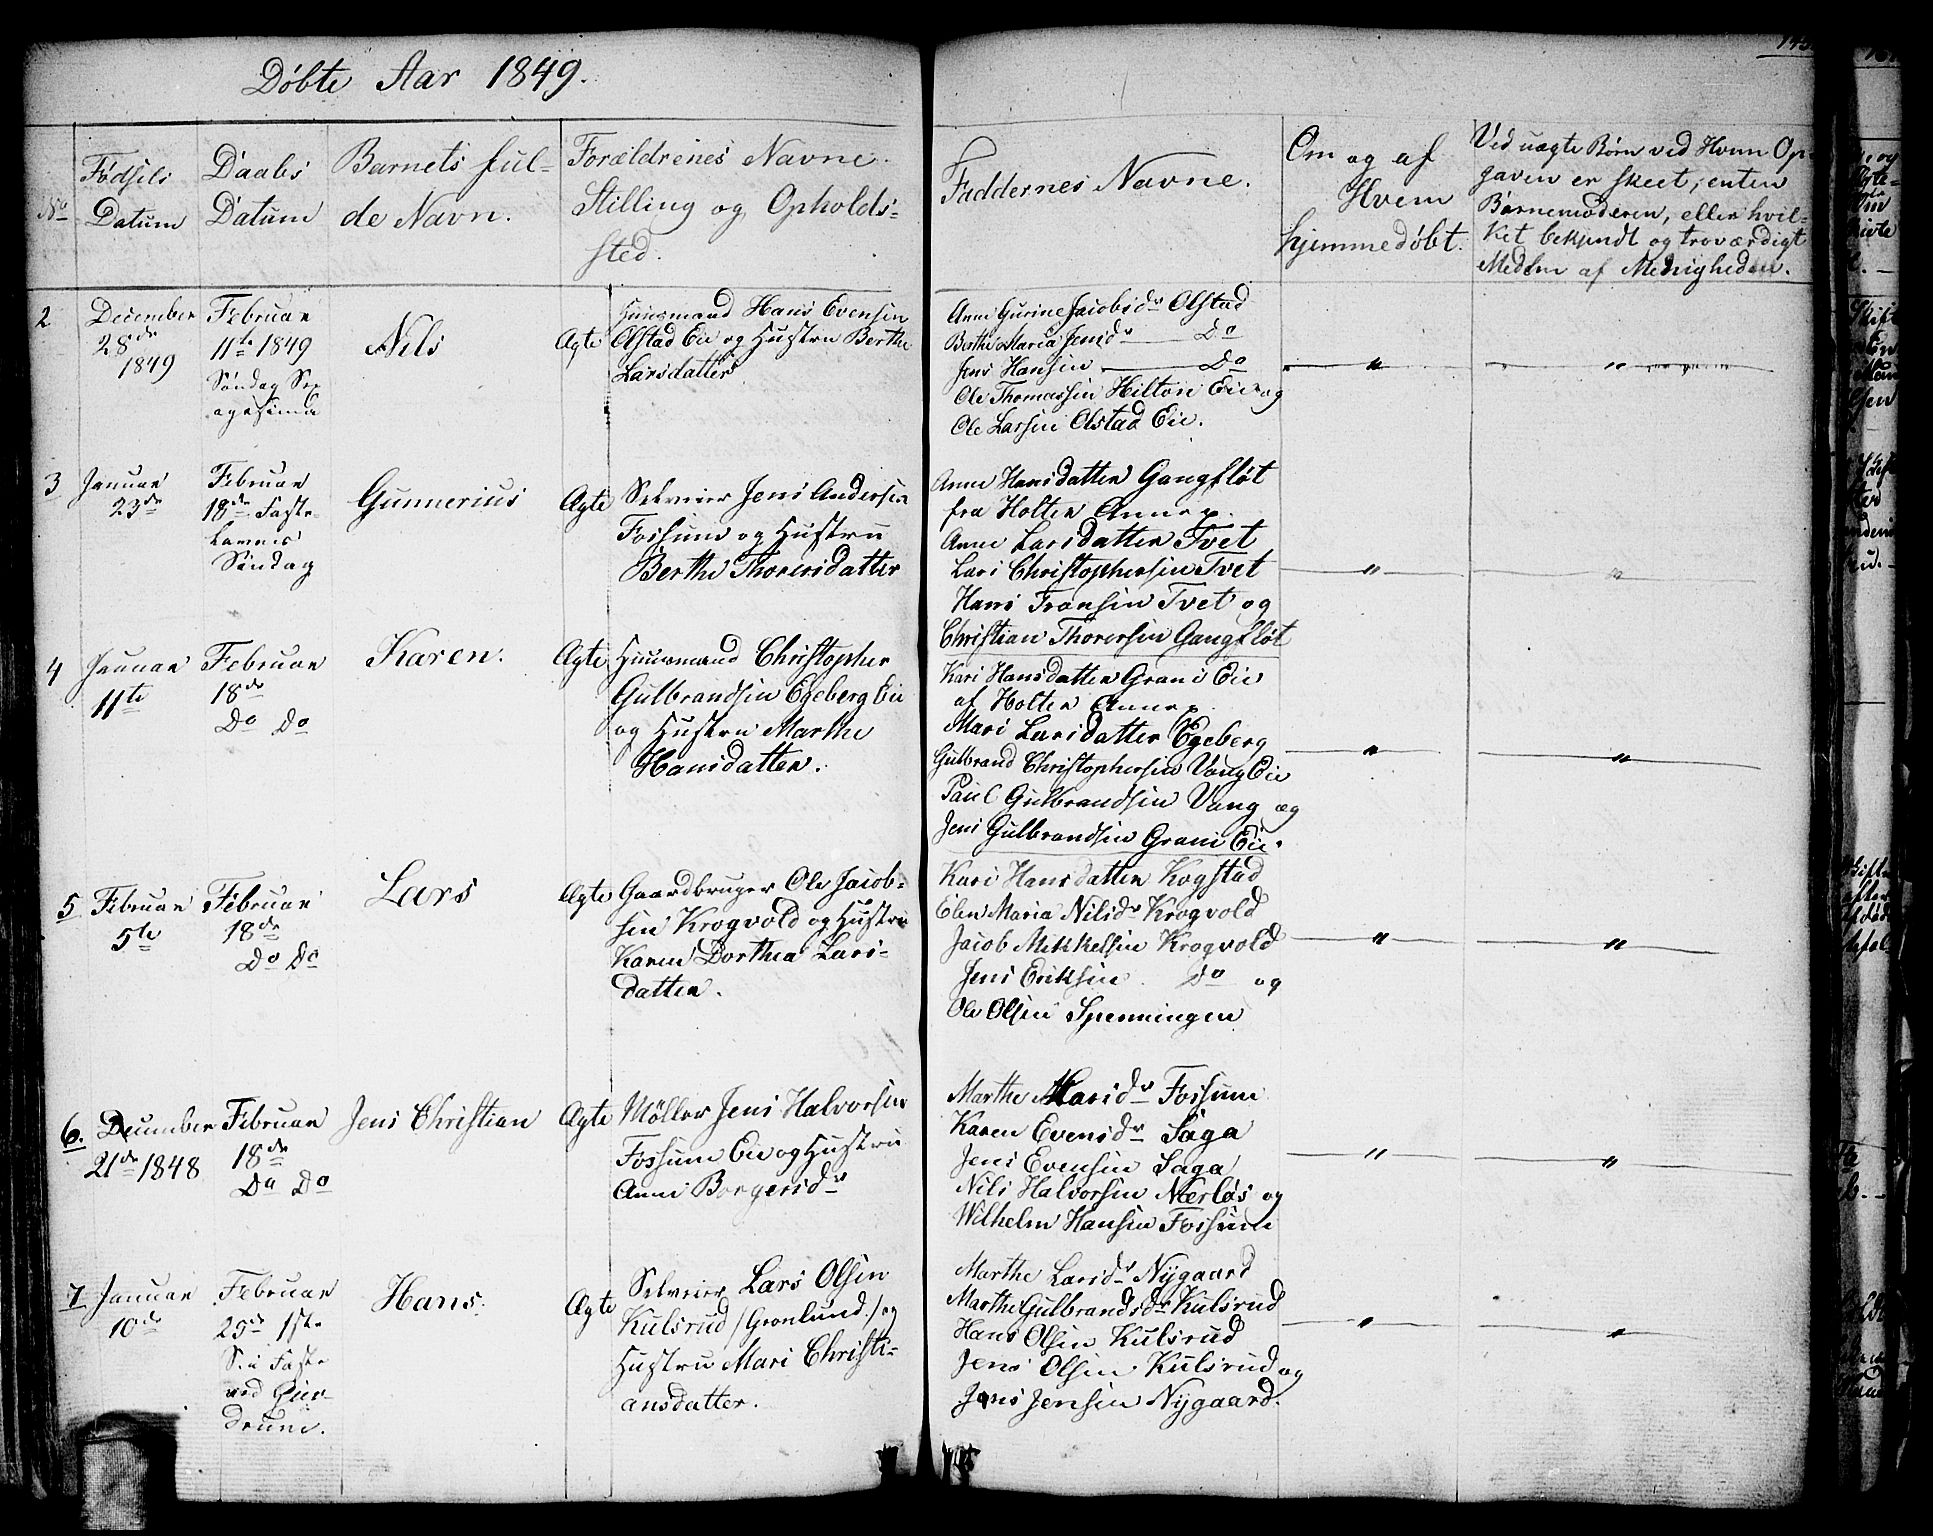 Döbte Aar 1849.
No
Födsels
Datum
Daabs
Datum
Barnets ful-
de Navn.
Forældrenes Navne.
Stilling og Opholds-
sted.
Faddernes Navne.
Om og af
Hvem
hjemmedöbt.
Ved uægte Börn ved Hvem Op-
gaven er skeet, enten
Barnemoderen, eller hvil-
ket bekjendt og troværdigt
Medlm af Menigheden.
2
December
28de
1849
Februar
11te 1849
Söndag Sex
agesima
Nils
Ægte
Huusmand Hans Evensen
Olstad Eie og Hustru Berthe
Larsdatter
Anne Gurine Jacobsdr Olstad
Berthe Maria Jensdr Do
Jens Hansen Do
Ole Thomassen Hilton Eie og
Ole Larsen Olstad Eie.
3
Januar
23de
Februar
18de Faste-
lavens
Söndag
Gunnerius
Ægte
Selveier Jens Andersen
Fossum og Hustru
Berthe Thorersdatter
Anne Hansdatter Gangflöt
fra Holter Annex.
Anne Larsdatter Tvet
Lars Christophersen Tvet
Hans Fransen Tvet og
Christian Thorersen Gangflöt
4
Januar
11te
Februar
18de
Do Do
Karen.
Ægte
Huusmand Christopher
Gulbrandsen Egeberg Eie
og Hustru Marthe
Hansdatter.
Kari Hansdatter Grani Eie
af Holter Annex
Mari Larsdatter Egeberg
Gulbrand Christophersen Vang Eie
Paul Gulbrandsen Vang og
Jens Gulbrandsen Grani Eie.
5
Februar
5te
Februar
18de
Do Do
Lars
Ægte
Gaardbruger Ole Jacob-
sen Krogvold og Hustru
Karen Dorthea Lars-
datter.
Kari Hansdatter Kogstad
Elen Maria Nilsdr Krogvold
Jacob Mikkelsen Krogvold
Jens Eriksen Do og
Ole Olsen Spenningen
6.
December
21de 1848
Februar
18de
Do Do
Jens Christian
Ægte
Möller Jens Halvorsen
Fossum Eie og Hustru
Anne Borgersdr
Marthe Larsdr Fossum
Karen Evensdr Saga
Jens Evensen Saga
Nils Halvorsen Nærlös og
Wilhelm Hansen Fossum
7
Januar
10de
Februar
25de 1ste
S. i Faste
ved Gjer-
drum.
Hans.
Ægte
Selveier Lars Olsen
Kulsrud /Gronlund./ og
Hustru Mari Christi-
ansdatter.
Marthe Larsdr Nygaard
Marthe Gulbrandsdr Kulsrud
Hans Olsen Kulsrud
Jens Olsen Kulsrud og
Jens Jensen Nygaard.